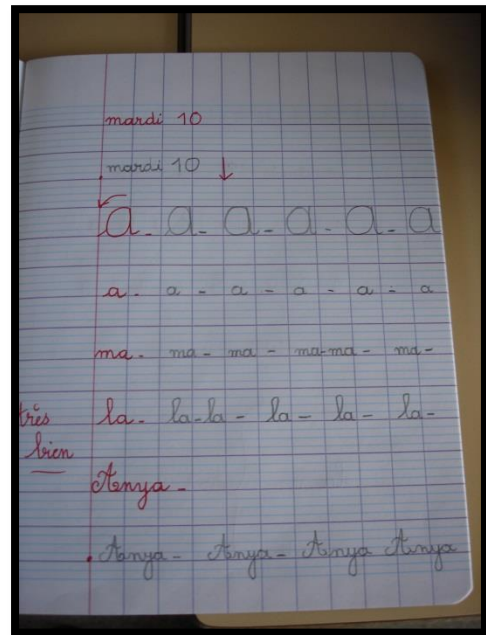 mardi 10
mardi 10
a - a - a - a - a - a
a - a - a - a - a - a
ma - ma - ma - ma-ma - ma -
très
la - la-la - la - la - la -
bien
Anya -
Anya - Anya - Anya Anya